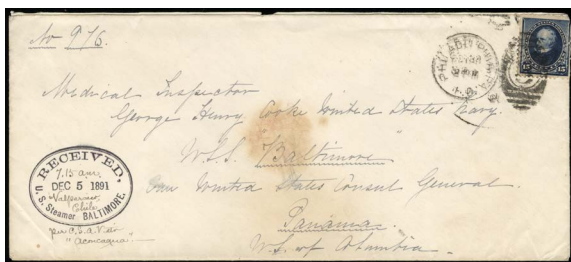 No 976.
PHILADELPHIA, PA.
15 15
Medical Inspector
George Henry Cooke United States Navy.
U.S.S. Baltimore
Care United States Consul General.
Panama.
U.S. of Columbia.
RECEIVED.
7.15 am
DEC 5 1891
Valparaiso,
Chile
U.S. Steamer BALTIMORE.
per P.S.
"Aconcagua"